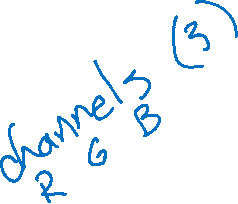 channels (3)
R G B